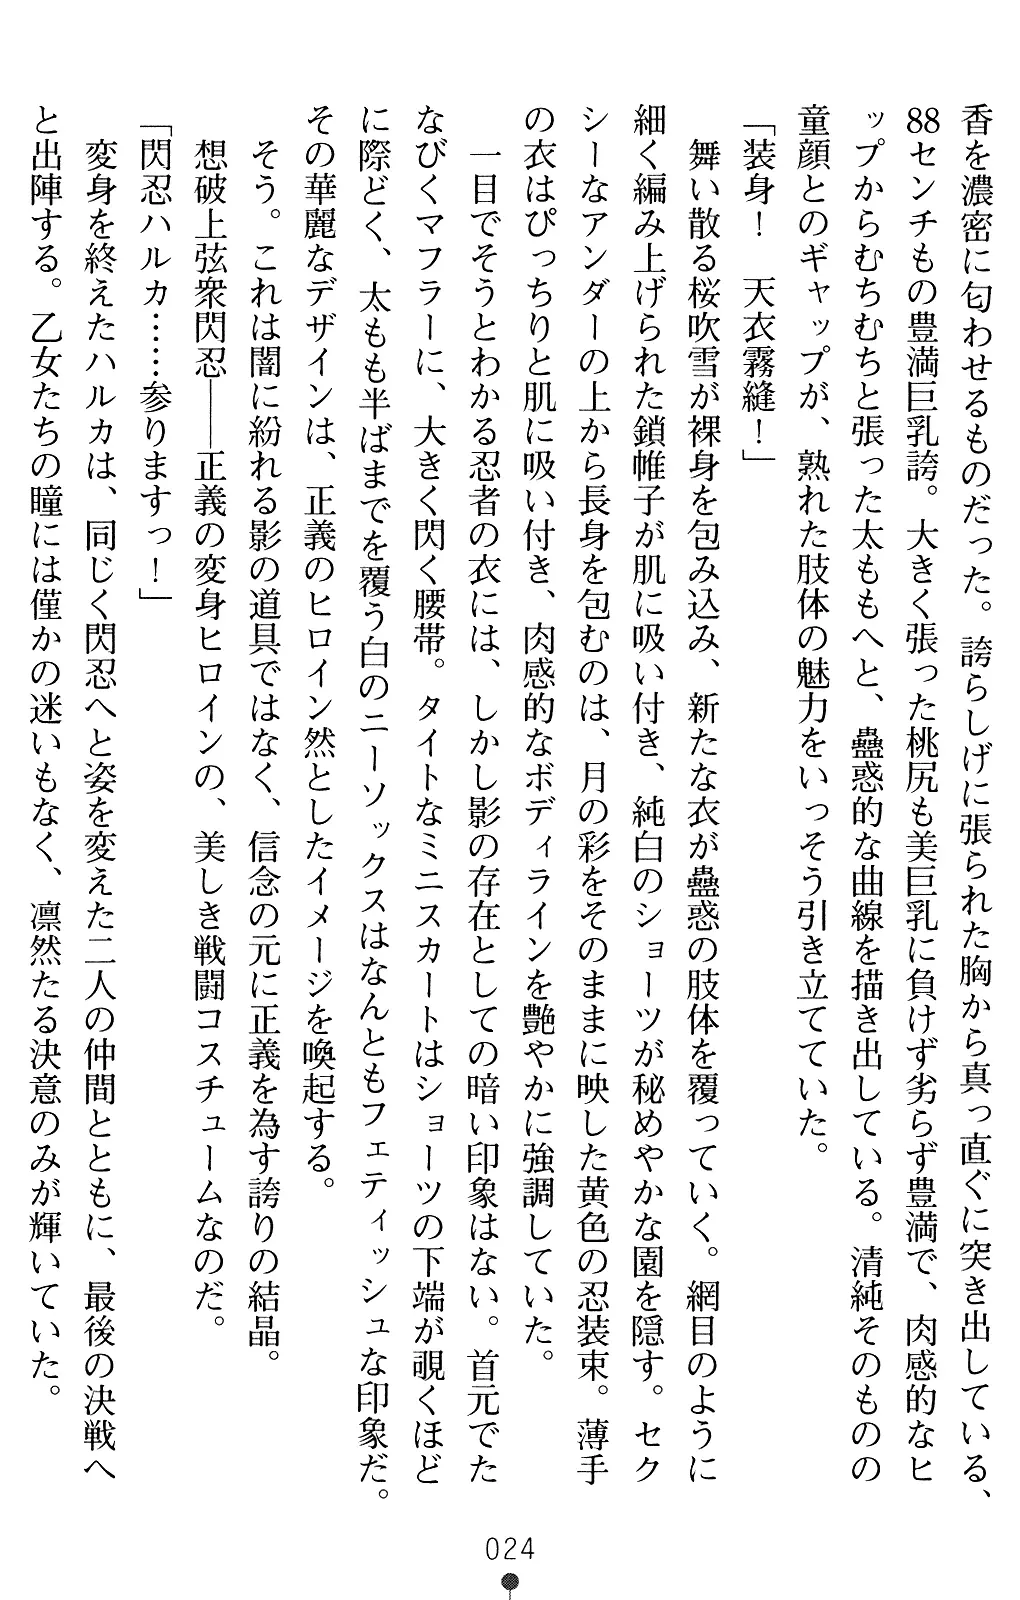 香を濃密に匂わせるものだった。誇らしげに張られた胸から真っ直ぐに突き出している、
88センチもの豊満巨乳誇。大きく張った桃尻も美巨乳に負けず劣らず豊満で、肉感的なヒ
ップからむちむちと張った太ももへと、蠱惑的な曲線を描き出している。清純そのものの
童顔とのギャップが、熟れた肢体の魅力をいっそう引き立てていた。
「装身！　天衣霧縫！」
　舞い散る桜吹雪が裸身を包み込み、新たな衣が蠱惑の肢体を覆っていく。網目のように
細く編み上げられた鎖帷子が肌に吸い付き、純白のショーツが秘めやかな園を隠す。セク
シーなアンダーの上から長身を包むのは、月の彩をそのままに映した黄色の忍装束。薄手
の衣はぴっちりと肌に吸い付き、肉感的なボディラインを艶やかに強調していた。
　一目でそうとわかる忍者の衣には、しかし影の存在としての暗い印象はない。首元でた
なびくマフラーに、大きく閃く腰帯。タイトなミニスカートはショーツの下端が覗くほど
に際どく、太もも半ばまでを覆う白のニーソックスはなんともフェティッシュな印象だ。
その華麗なデザインは、正義のヒロイン然としたイメージを喚起する。
　そう。これは闇に紛れる影の道具ではなく、信念の元に正義を為す誇りの結晶。
　想破上弦衆閃忍――正義の変身ヒロインの、美しき戦闘コスチュームなのだ。
「閃忍ハルカ……参りますっ！」
　変身を終えたハルカは、同じく閃忍へと姿を変えた二人の仲間とともに、最後の決戦へ
と出陣する。乙女たちの瞳には僅かの迷いもなく、凛然たる決意のみが輝いていた。
024